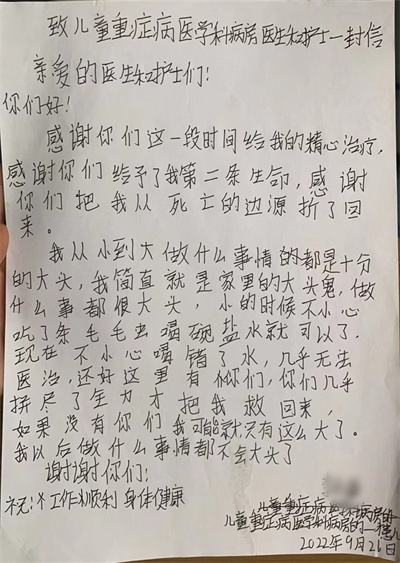 致儿童重症病医学科病房医生和护士一封信
亲爱的医生和护士们:
你们好!
感谢你们这一段时间给我的精心治疗,
感谢你们给予了我第二条生命,感谢
你们把我从死亡的边源折了回
来。
我从小到大做什么事情的都是十分
的大头,我简直就是家里的大头鬼,做
什么事都很大头,小的时候不小心
吃了条毛毛虫喝碗盐水就可以了.
现在不小心喝错了水,几乎无法
医治,还好这里有你们,你们几乎
拼尽了全力才把我救回来,
如果没有你们我可能就只有这么大了。
我以后做什么事情都不会大头了
谢谢你们:
祝: 工作顺利 身体健康
儿童重症病医学科病房的一
2022年9月26日